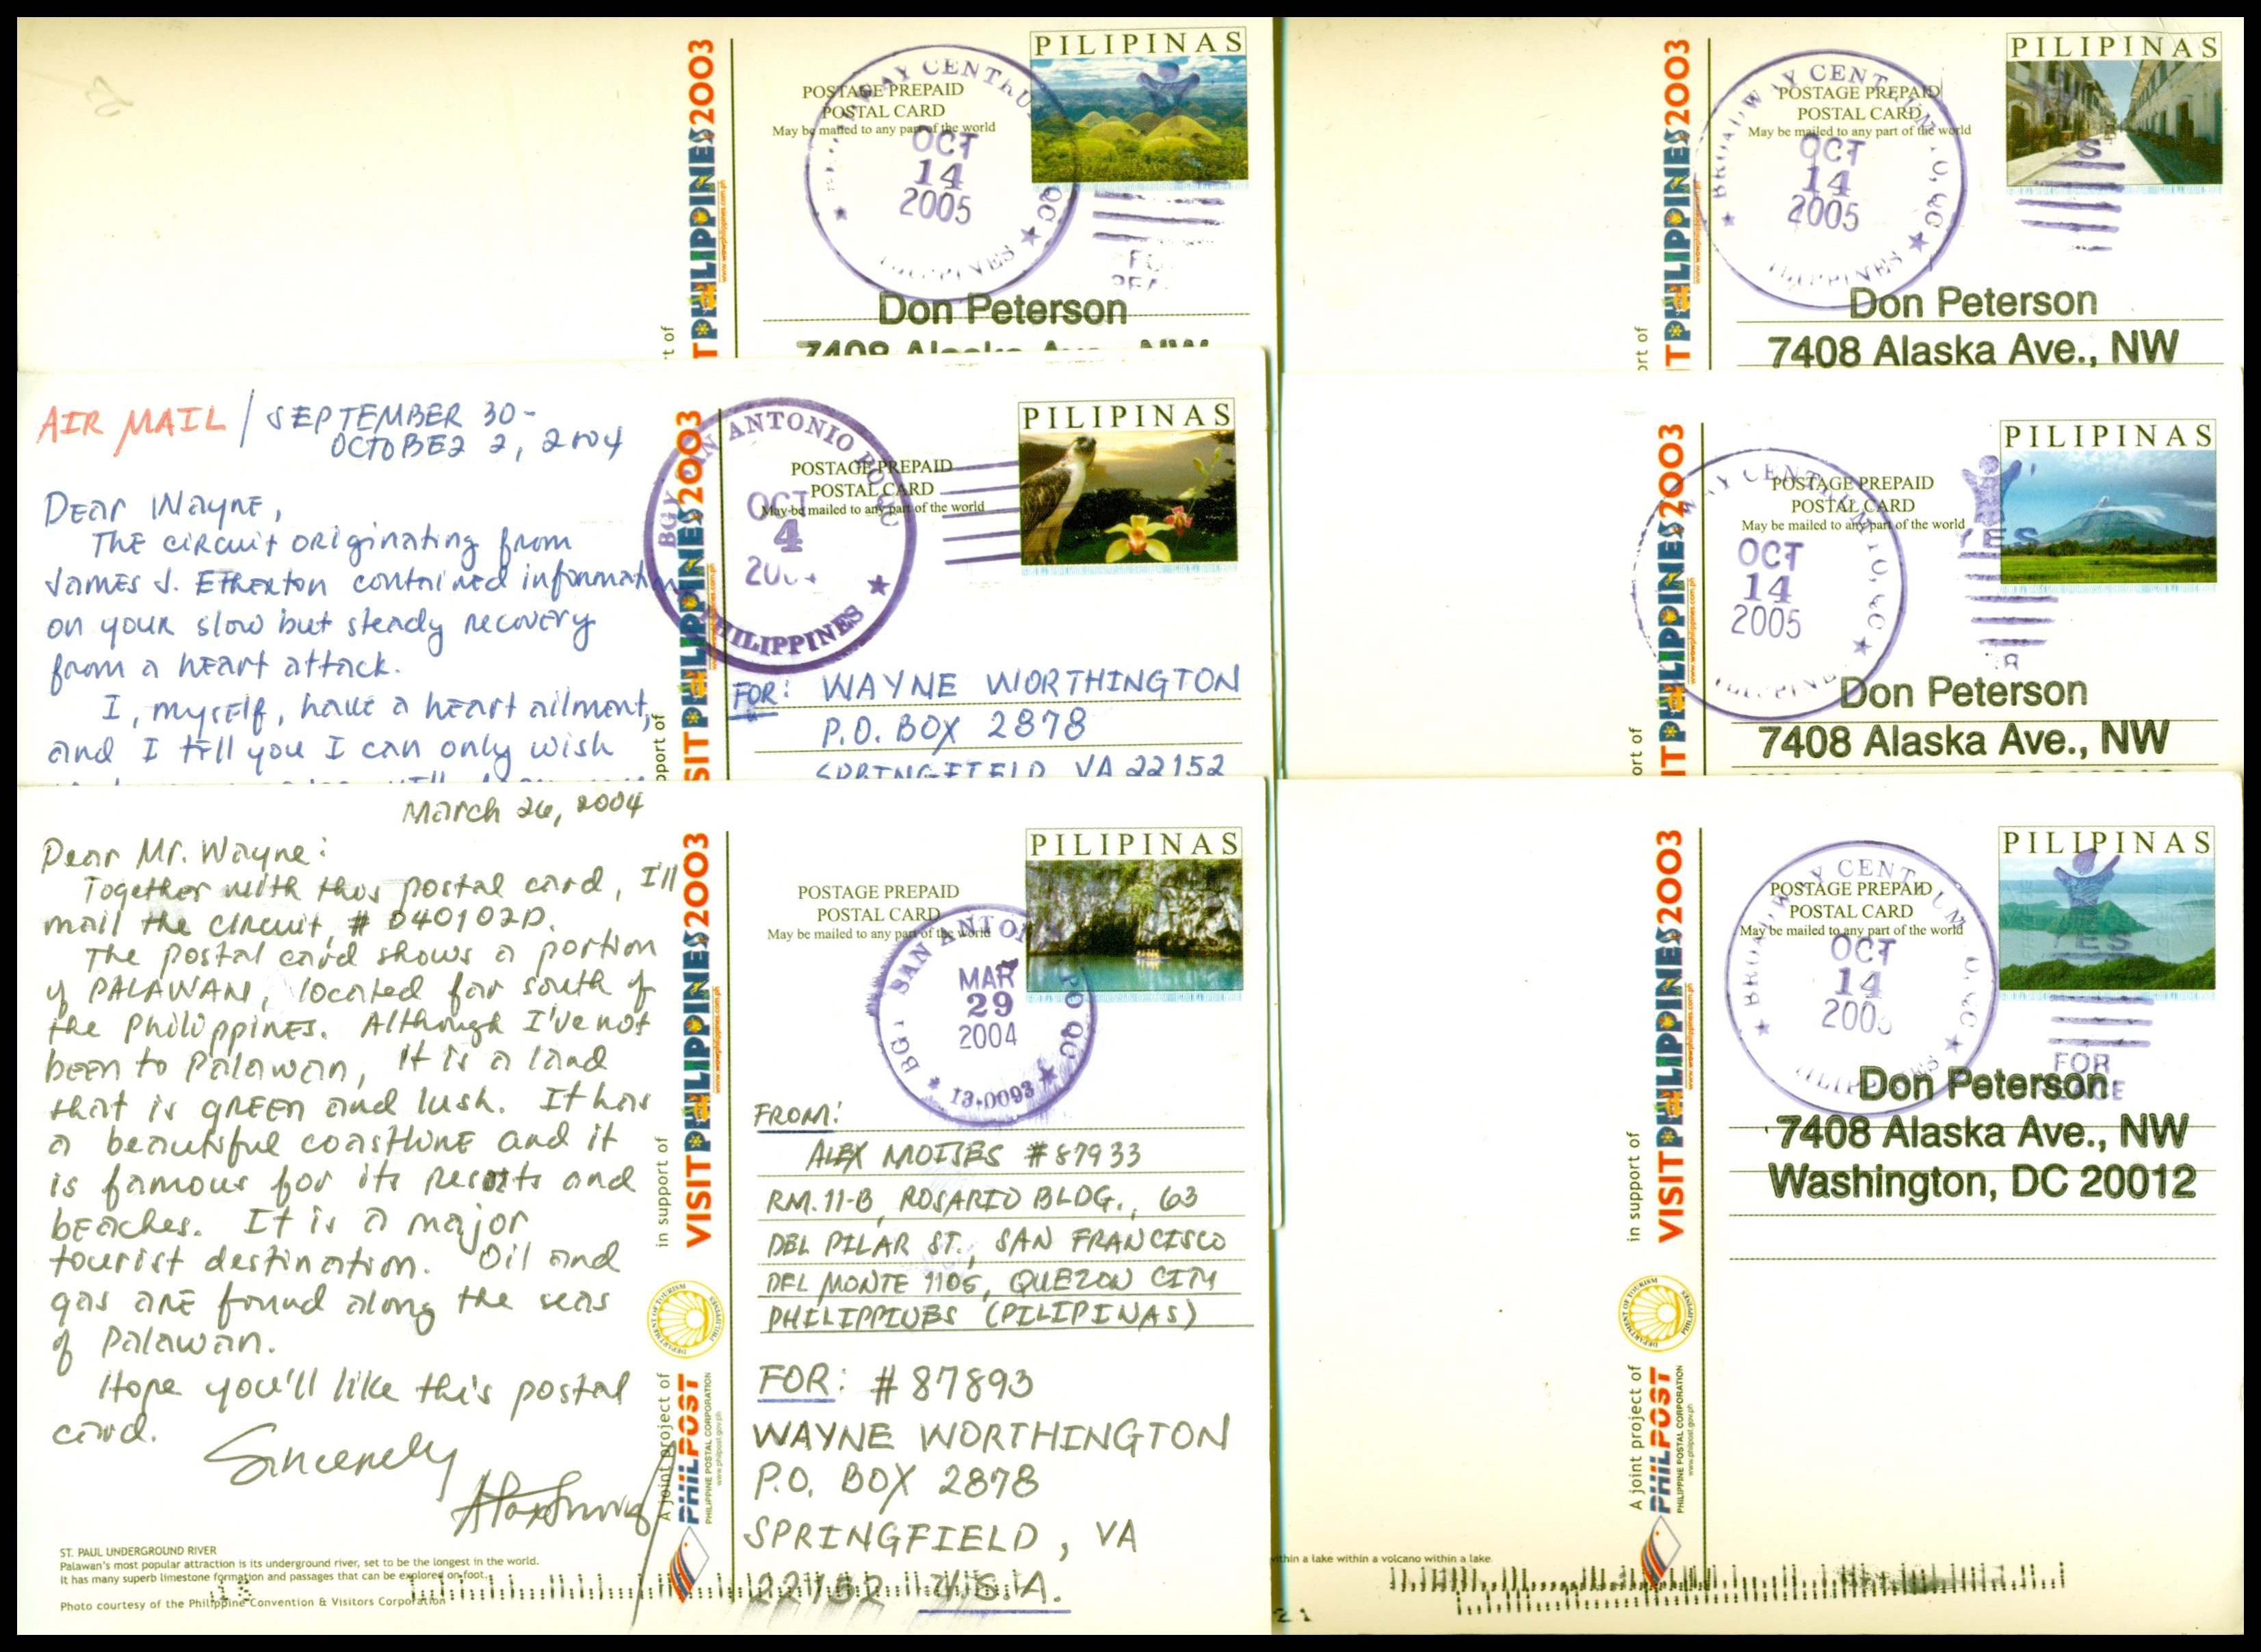 PILIPINAS
POSTAGE PREPAID
POSTAL CARD
May be mailed to any part of the world
WAY CENTRU
QC
OCT
14
2005
VISITPHILIPPINES2003
www.wowphilippines.com.ph
Don Peterson
7408 Alaska Ave., NW
PILIPINAS
POSTAGE PREPAID
POSTAL CARD
May be mailed to any part of the world
OCT
14
2005
TPHILIPPINES2003
www.wowphilippines.com.ph
Don Peterson
7408 Alaska Ave., NW
AIR MAIL / SEPTEMBER 30-
OCTOBER 2, 2004
Dear Wayne,
The circuit originating from
James J. Etherton contained information
on your slow but steady recovery
from a heart attack.
I, myself, have a heart ailment,
and I tell you I can only wish
PILIPINAS
POSTAGE PREPAID
POSTAL CARD
May be mailed to any part of the world
ANTONIO
PHILIPPINES
OCT
4
SITPHILIPPINES2003
FOR: WAYNE WORTHINGTON
P.O. BOX 2878
SPRINGFIELD VA 22152
PILIPINAS
POSTAGE PREPAID
POSTAL CARD
May be mailed to any part of the world
OCT
14
2005
YES
VISITPHILIPPINES2003
www.wowphilippines.com.ph
Don Peterson
7408 Alaska Ave., NW
March 26, 2004
Dear Mr. Wayne:
Together with this postal card, I'll
mail the circuit, # 040102D.
The postal card shows a portion
of PALAWAN, located far south of
the Philippines. Although I've not
been to Palawan, it is a land
that is green and lush. It has
a beautiful coastline and it
is famous for its resorts and
beaches. It is a major
tourist destination. Oil and
gas are found along the seas
of Palawan.
Hope you'll like this postal
card.
Sincerely
ST. PAUL UNDERGROUND RIVER
Palawan's most popular attraction is its underground river, set to be the longest in the world.
It has many superb limestone formation and passages that can be explored on foot.
Photo courtesy of the Philippine Convention & Visitors Corporation
A joint project of
PHILPOST
PHILIPPINE POSTAL CORPORATION
www.philpost.gov.ph
DEPARTMENT OF TOURISM
PHILIPPINES
in support of
VISITPHILIPPINES2003
www.wowphilippines.com.ph
PILIPINAS
POSTAGE PREPAID
POSTAL CARD
May be mailed to any part of the world
SAN ANTONIO
PO QC
MAR
29
2004
13-0093
FROM:
ALEX MOISES #87933
RM. 11-B, ROSARIO BLDG., 63
DEL PILAR ST., SAN FRANCISCO
DEL MONTE 1105, QUEZON CITY
PHILIPPINES (PILIPINAS)
FOR: #87893
WAYNE WORTHINGTON
P.O. BOX 2878
SPRINGFIELD, VA
22152 U.S.A.
PILIPINAS
POSTAGE PREPAID
POSTAL CARD
May be mailed to any part of the world
OCT
14
YES
FOR
Don Peterson
7408 Alaska Ave., NW
Washington, DC 20012
in support of
VISITPHILIPPINES2003
www.wowphilippines.com.ph
DEPARTMENT OF TOURISM
PHILIPPINES
A joint project of
PHILPOST
PHILIPPINE POSTAL CORPORATION
www.philpost.gov.ph
within a lake within a volcano within a lake
21